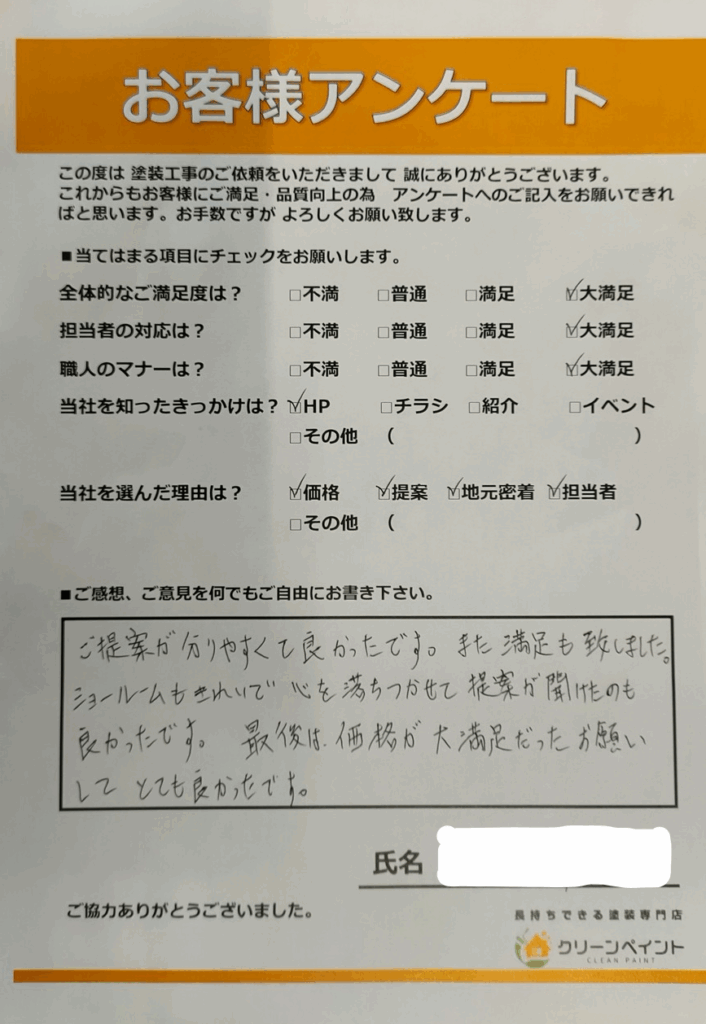 お客様アンケート
この度は 塗装工事のご依頼をいただきまして 誠にありがとうございます。
これからもお客様にご満足・品質向上の為　アンケートへのご記入をお願いできれ
ばと思います。お手数ですが よろしくお願い致します。
■当てはまる項目にチェックをお願いします。
全体的なご満足度は？ □不満 □普通 □満足 ☑大満足
担当者の対応は？ □不満 □普通 □満足 ☑大満足
職人のマナーは？ □不満 □普通 □満足 ☑大満足
当社を知ったきっかけは？ ☑HP □チラシ □紹介 □イベント
□その他 （　　　　　　　　　　）
当社を選んだ理由は？ ☑価格 ☑提案 ☑地元密着 ☑担当者
□その他 （　　　　　　　　　　）
■ご感想、ご意見を何でもご自由にお書き下さい。
ご提案が分りやすくて良かったです。また満足も致しました。
ショールームもきれいで 心を落ちつかせて提案が聞けたのも
良かったです。 最後は、価格が大満足だったお願い
して とても良かったです。
氏名
ご協力ありがとうございました。
長持ちできる塗装専門店
クリーンペイント
CLEAN PAINT